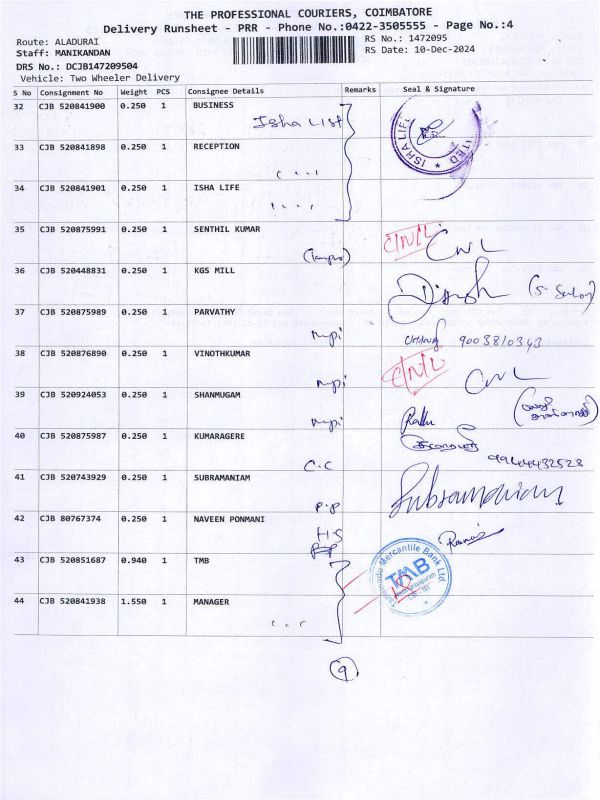 THE PROFESSIONAL COURIERS, COIMBATORE
Delivery Runsheet - PRR - Phone No.:0422-3505555 - Page No.:4
Route: ALADURAI
Staff: MANIKANDAN
RS No.: 1472095
RS Date: 10-Dec-2024
DRS No.: DCJB147209504
Vehicle: Two Wheeler Delivery
S No Consignment No Weight PCS Consignee Details Remarks Seal & Signature
32 CJB 520841900 0.250 1 BUSINESS
Isha List
ISHA LIFE
33 CJB 520841898 0.250 1 RECEPTION
34 CJB 520841901 0.250 1 ISHA LIFE
35 CJB 520875991 0.250 1 SENTHIL KUMAR
C/N/L CNL
36 CJB 520448831 0.250 1 KGS MILL
37 CJB 520875989 0.250 1 PARVATHY
mpi 9003810343
38 CJB 520876890 0.250 1 VINOTHKUMAR
mpi C/N/L CNL
39 CJB 520924053 0.250 1 SHANMUGAM
mpi
40 CJB 520875987 0.250 1 KUMARAGERE
C.C 9944432528
41 CJB 520743929 0.250 1 SUBRAMANIAM
P.P Subramaniam
42 CJB 80767374 0.250 1 NAVEEN PONMANI
HS
43 CJB 520851687 0.940 1 TMB
Tamilnadu Mercantile Bank Ltd
TMB
44 CJB 520841938 1.550 1 MANAGER
9